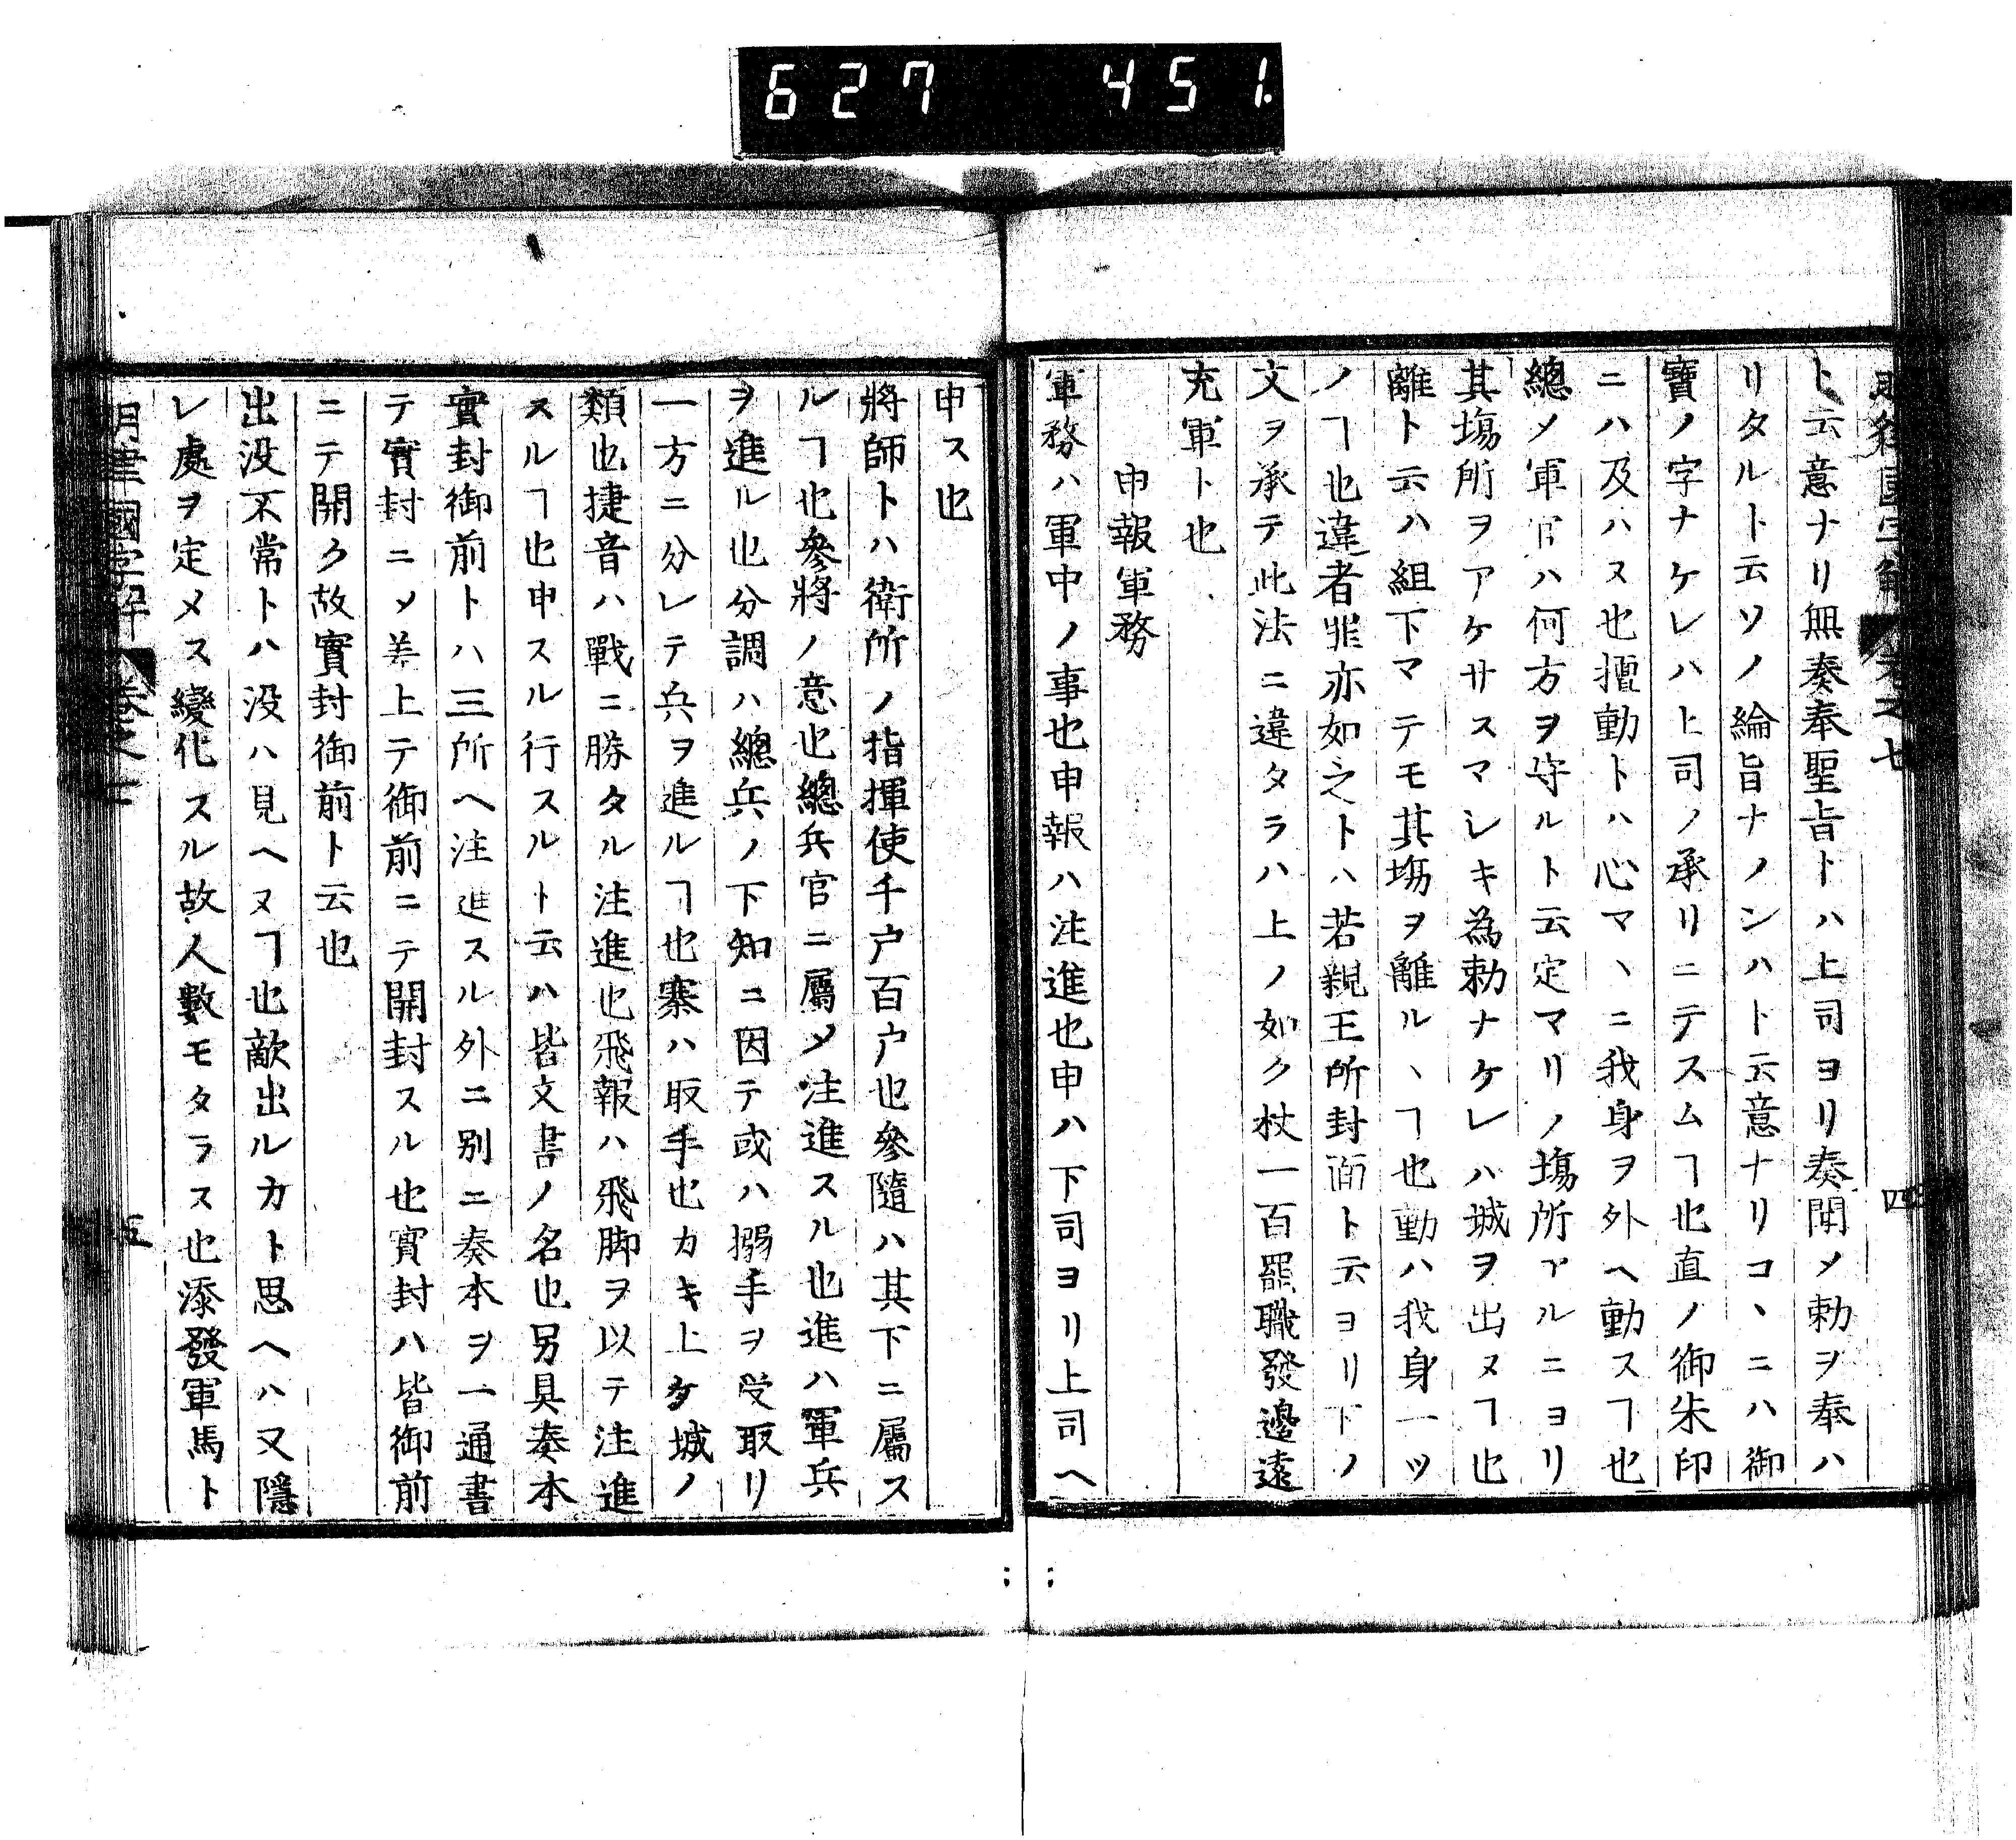 627 451.
明律國字解 卷之七 四
ト云意ナリ無奏奉聖旨トハ上司ヨリ奏聞メ勅ヲ奉ハ
リタルト云ソノ綸旨ナノンハト云意ナリコヽニハ御
寶ノ字ナケレハ上司ノ承リニテスムヿ也直ノ御朱印
ニハ及ハヌ也擅動トハ心マヽニ我身ヲ外ヘ動スヿ也
總メ軍官ハ何方ヲ守ルト云定マリノ塲所アルニヨリ
其塲所ヲアケサスマシキ為勅ナケレハ城ヲ出ヌヿ也
離ト云ハ組下マテモ其塲ヲ離ルヽヿ也動ハ我身一ツ
ノヿ也違者罪亦如之トハ若親王所封面ト云ヨリ下ノ
文ヲ承テ此法ニ違タラハ上ノ如ク杖一百罷職發邊遠
充軍ト也
申報軍務
軍務ハ軍中ノ事也申報ハ注進也申ハ下司ヨリ上司ヘ
申ス也
將師トハ衛所ノ指揮使千户百户也參隨ハ其下ニ屬ス
ルヿ也參將ノ意也總兵官ニ屬メ注進スル也進ハ軍兵
ヲ進ル也分調ハ總兵ノ下知ニ因テ或ハ搦手ヲ受取リ
一方ニ分レテ兵ヲ進ルヿ也寨ハ取手也カキ上ケ城ノ
類也捷音ハ戰ニ勝タル注進也飛報ハ飛脚ヲ以テ注進
スルヿ也申スル行スルト云ハ皆文書ノ名也另具奏本
實封御前トハ三所ヘ注進スル外ニ別ニ奏本ヲ一通書
テ實封ニメ差上テ御前ニテ開封スル也實封ハ皆御前
ニテ開ク故實封御前ト云也
出没不常トハ没ハ見ヘヌヿ也敵出ルカト思ヘハ又隱
レ處ヲ定メス變化スル故人數モタラス也添發軍馬ト
明律國字解 卷之七 五